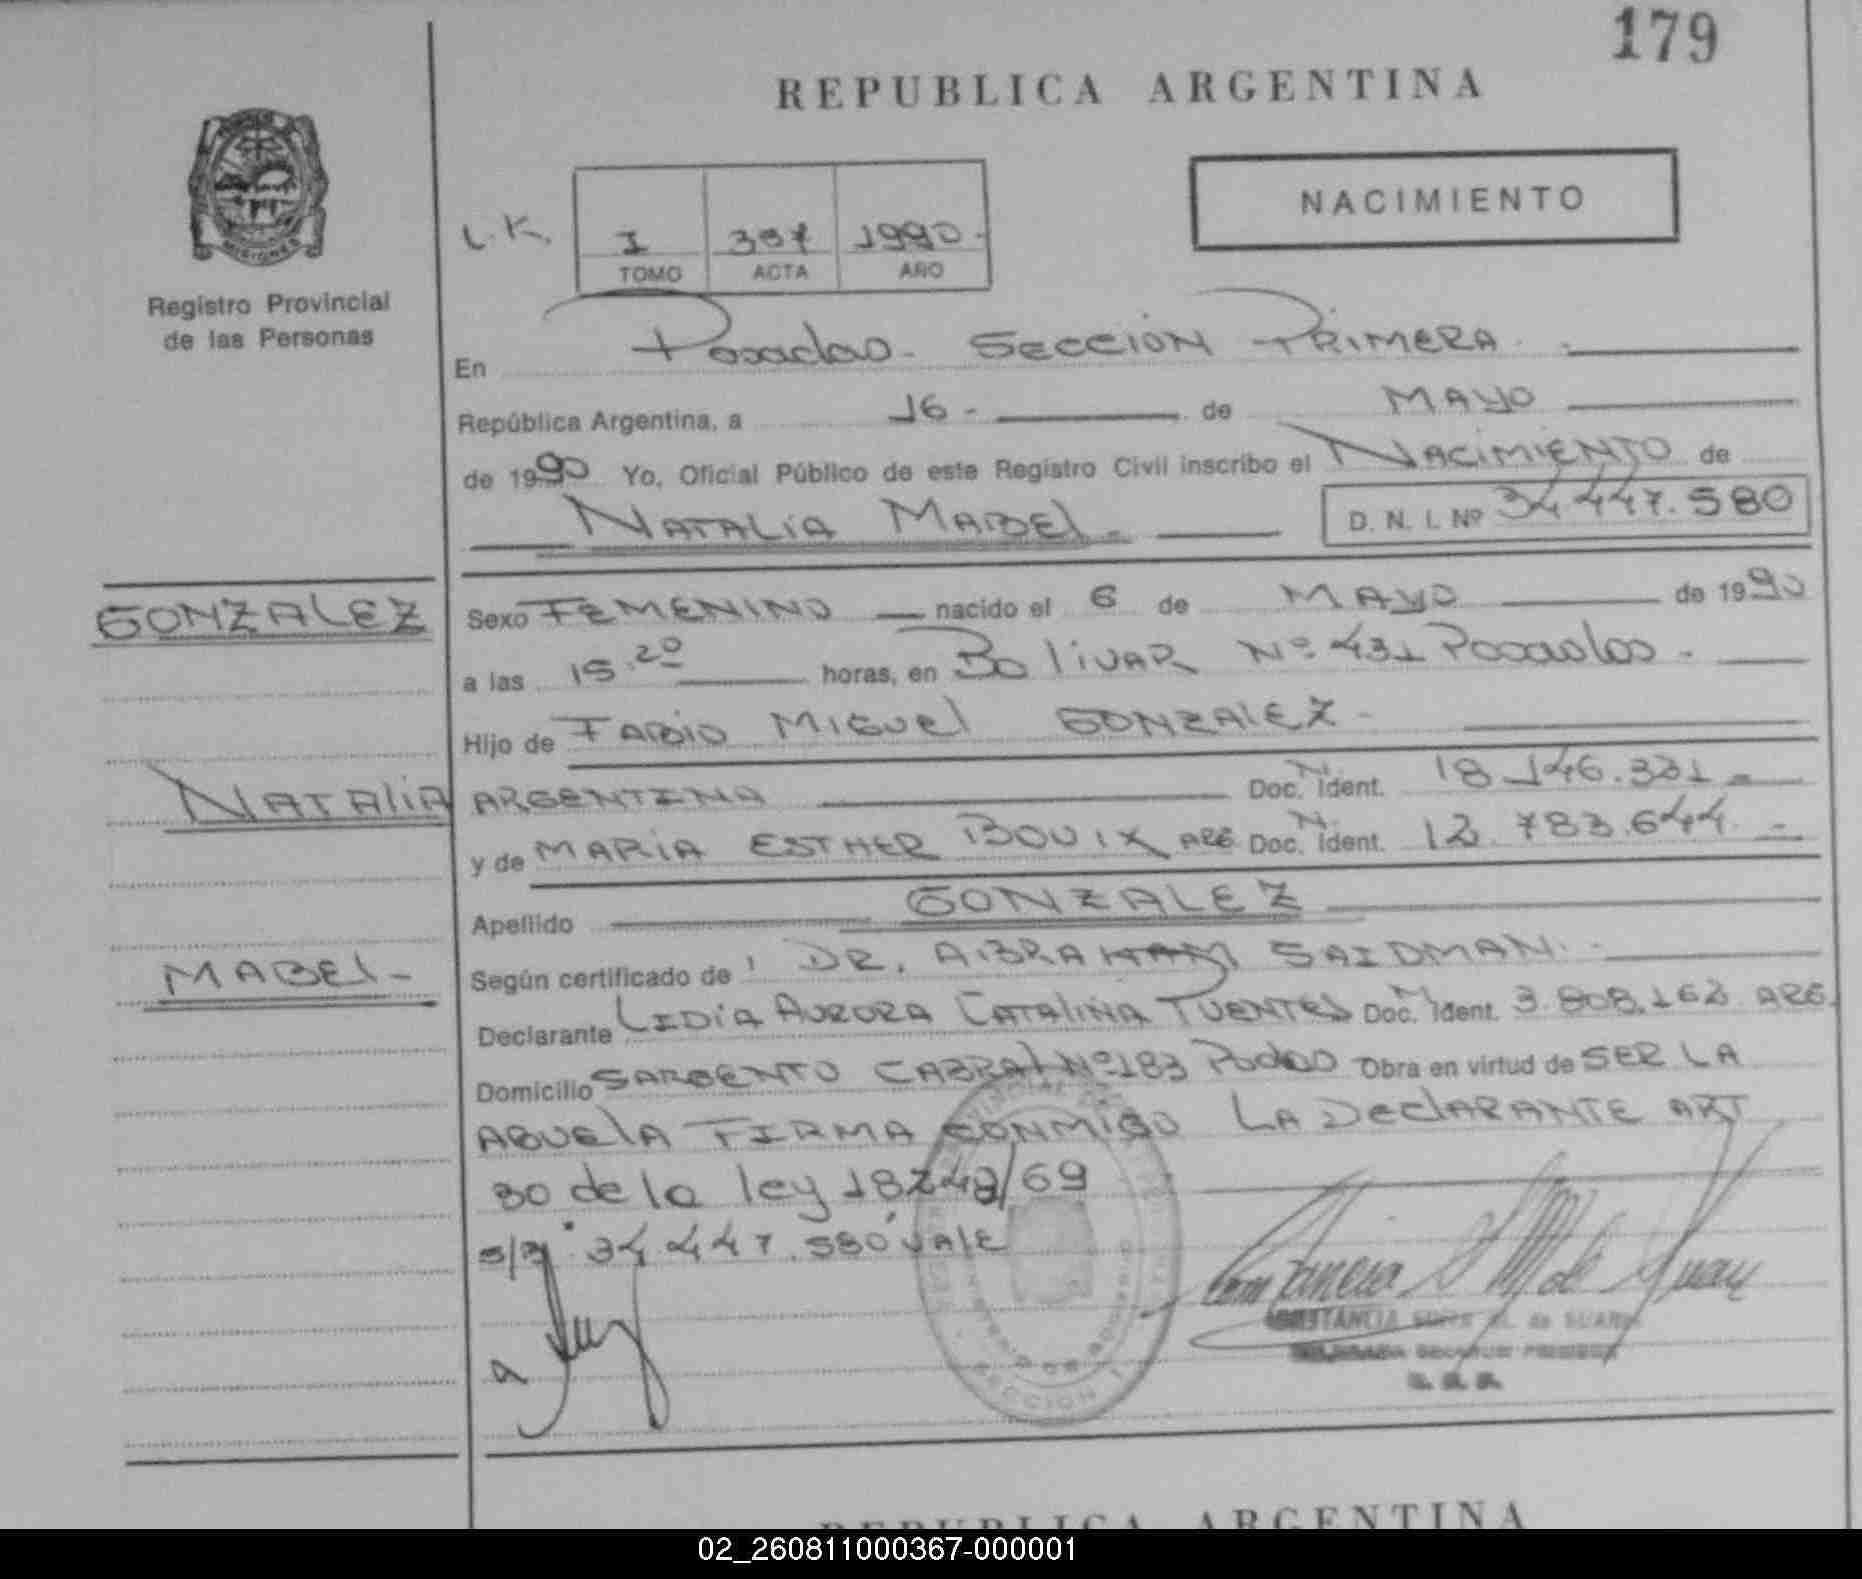 179
REPUBLICA ARGENTINA
NACIMIENTO
L.K.
I 357 1990.
TOMO ACTA AÑO
MISIONES
Registro Provincial
de las Personas
En Posadas. SECCION PRIMERA.
República Argentina, a 16 - de MAYO
de 1990 Yo, Oficial Público de este Registro Civil inscribo el NACIMIENTO de
NATALIA MABEL. D. N. I. Nº 34.447.580
GONZALEZ
Sexo FEMENINO nacido el 6 de MAYO de 1990
a las 15.20 horas, en BOLIVAR Nº 431 Posadas.
Hijo de FABIO MIGUEL GONZALEZ.
NATALIA
ARGENTINA Doc. N. Ident. 18.146.331
y de MARIA ESTHER BOUIX ARG Doc. N. Ident. 12.783.644.
Apellido GONZALEZ
MABEL
Según certificado de DR. ABRAHAM SAIDMAN.
Declarante LIDIA AURORA CATALINA FUENTES Doc. N. Ident. 3.808.162 ARG.
Domicilio SARGENTO CABRAL Nº 183 Podas Obra en virtud de SER LA
ABUELA FIRMA CONMIGO LA DECLARANTE ART
30 de la ley 18248/69
S/R 34.447.580 VALE
CONSTANCIA de SUAREZ
SECCION PRIMERA
SECCION 1
REPUBLICA ARGENTINA
02_260811000367-000001